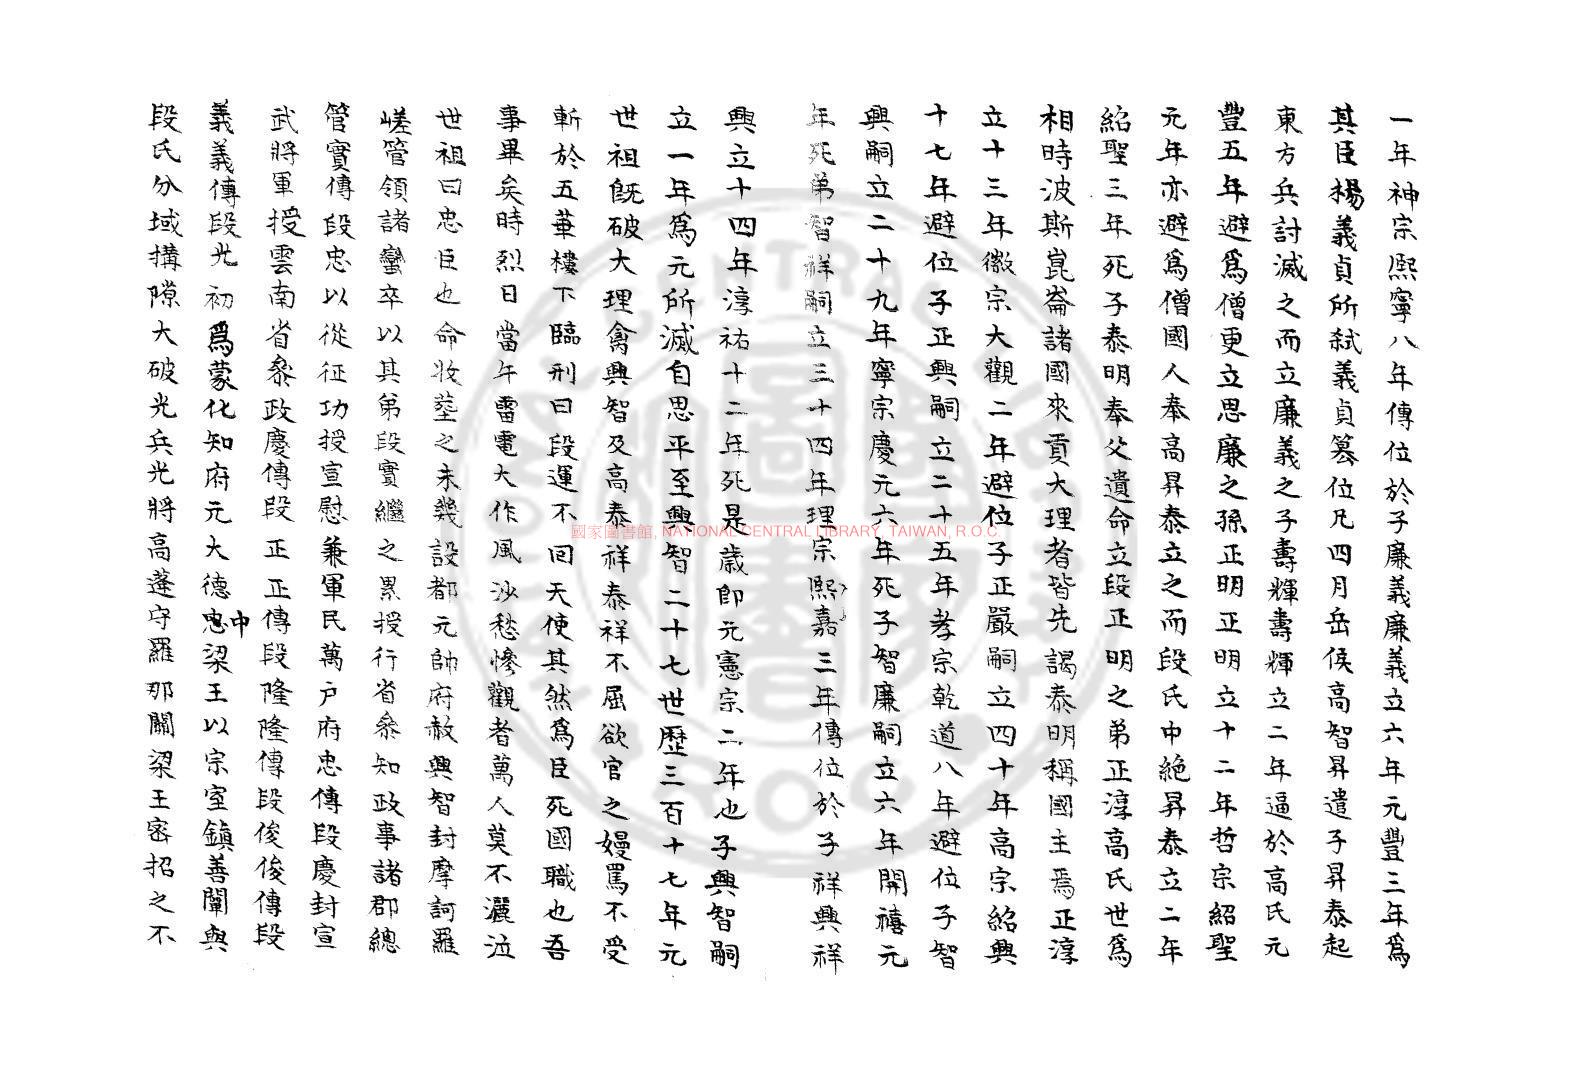 一年神宗熙寧八年傳位於子廉義廉義立六年元豐三年爲
其臣楊義貞所弒義貞篡位凡四月岳侯高智昇遣子昇泰起
東方兵討滅之而立廉義之子壽輝壽輝立二年逼於高氏元
豐五年避爲僧更立思廉之孫正明正明立十二年哲宗紹聖
元年亦避爲僧國人奉高昇泰立之而段氏中絶昇泰立二年
紹聖三年死子泰明奉父遺命立段正明之弟正淳高氏世爲
相時波斯崑崙諸國來貢大理者皆先謁泰明稱國主焉正淳
立十三年徽宗大觀二年避位子正嚴嗣立四十年高宗紹興
十七年避位子正興嗣立二十五年孝宗乾道八年避位子智
興嗣立二十九年寧宗慶元六年死子智廉嗣立六年開禧元
年死弟智祥嗣立三十四年理宗熙嘉三年傳位於子祥興祥
興立十四年淳祐十二年死是歲即元憲宗二年也子興智嗣
立一年爲元所滅自思平至興智二十七世歷三百十七年元
世祖旣破大理禽興智及高泰祥泰祥不屈欲官之嫚罵不受
斬於五華樓下臨刑曰段運不回天使其然爲臣死國職也吾
事畢矣時烈日當午雷電大作風沙愁慘觀者萬人莫不灑泣
世祖曰忠臣也命收塟之未幾設都元帥府赦興智封摩訶羅
嵯管領諸蠻卒以其弟段實繼之累授行省叅知政事諸郡總
管實傳段忠以從征功授宣慰兼軍民萬户府忠傳段慶封宣
武將軍授雲南省叅政慶傳段正正傳段隆隆傳段俊俊傳段
義義傳段光初爲蒙化知府元大德忠中梁王以宗室鎮善闡與
段氏分域搆隙大破光兵光將高蓬守羅那關梁王密招之不
國家圖書館, NATIONAL CENTRAL LIBRARY, TAIWAN, R.O.C.